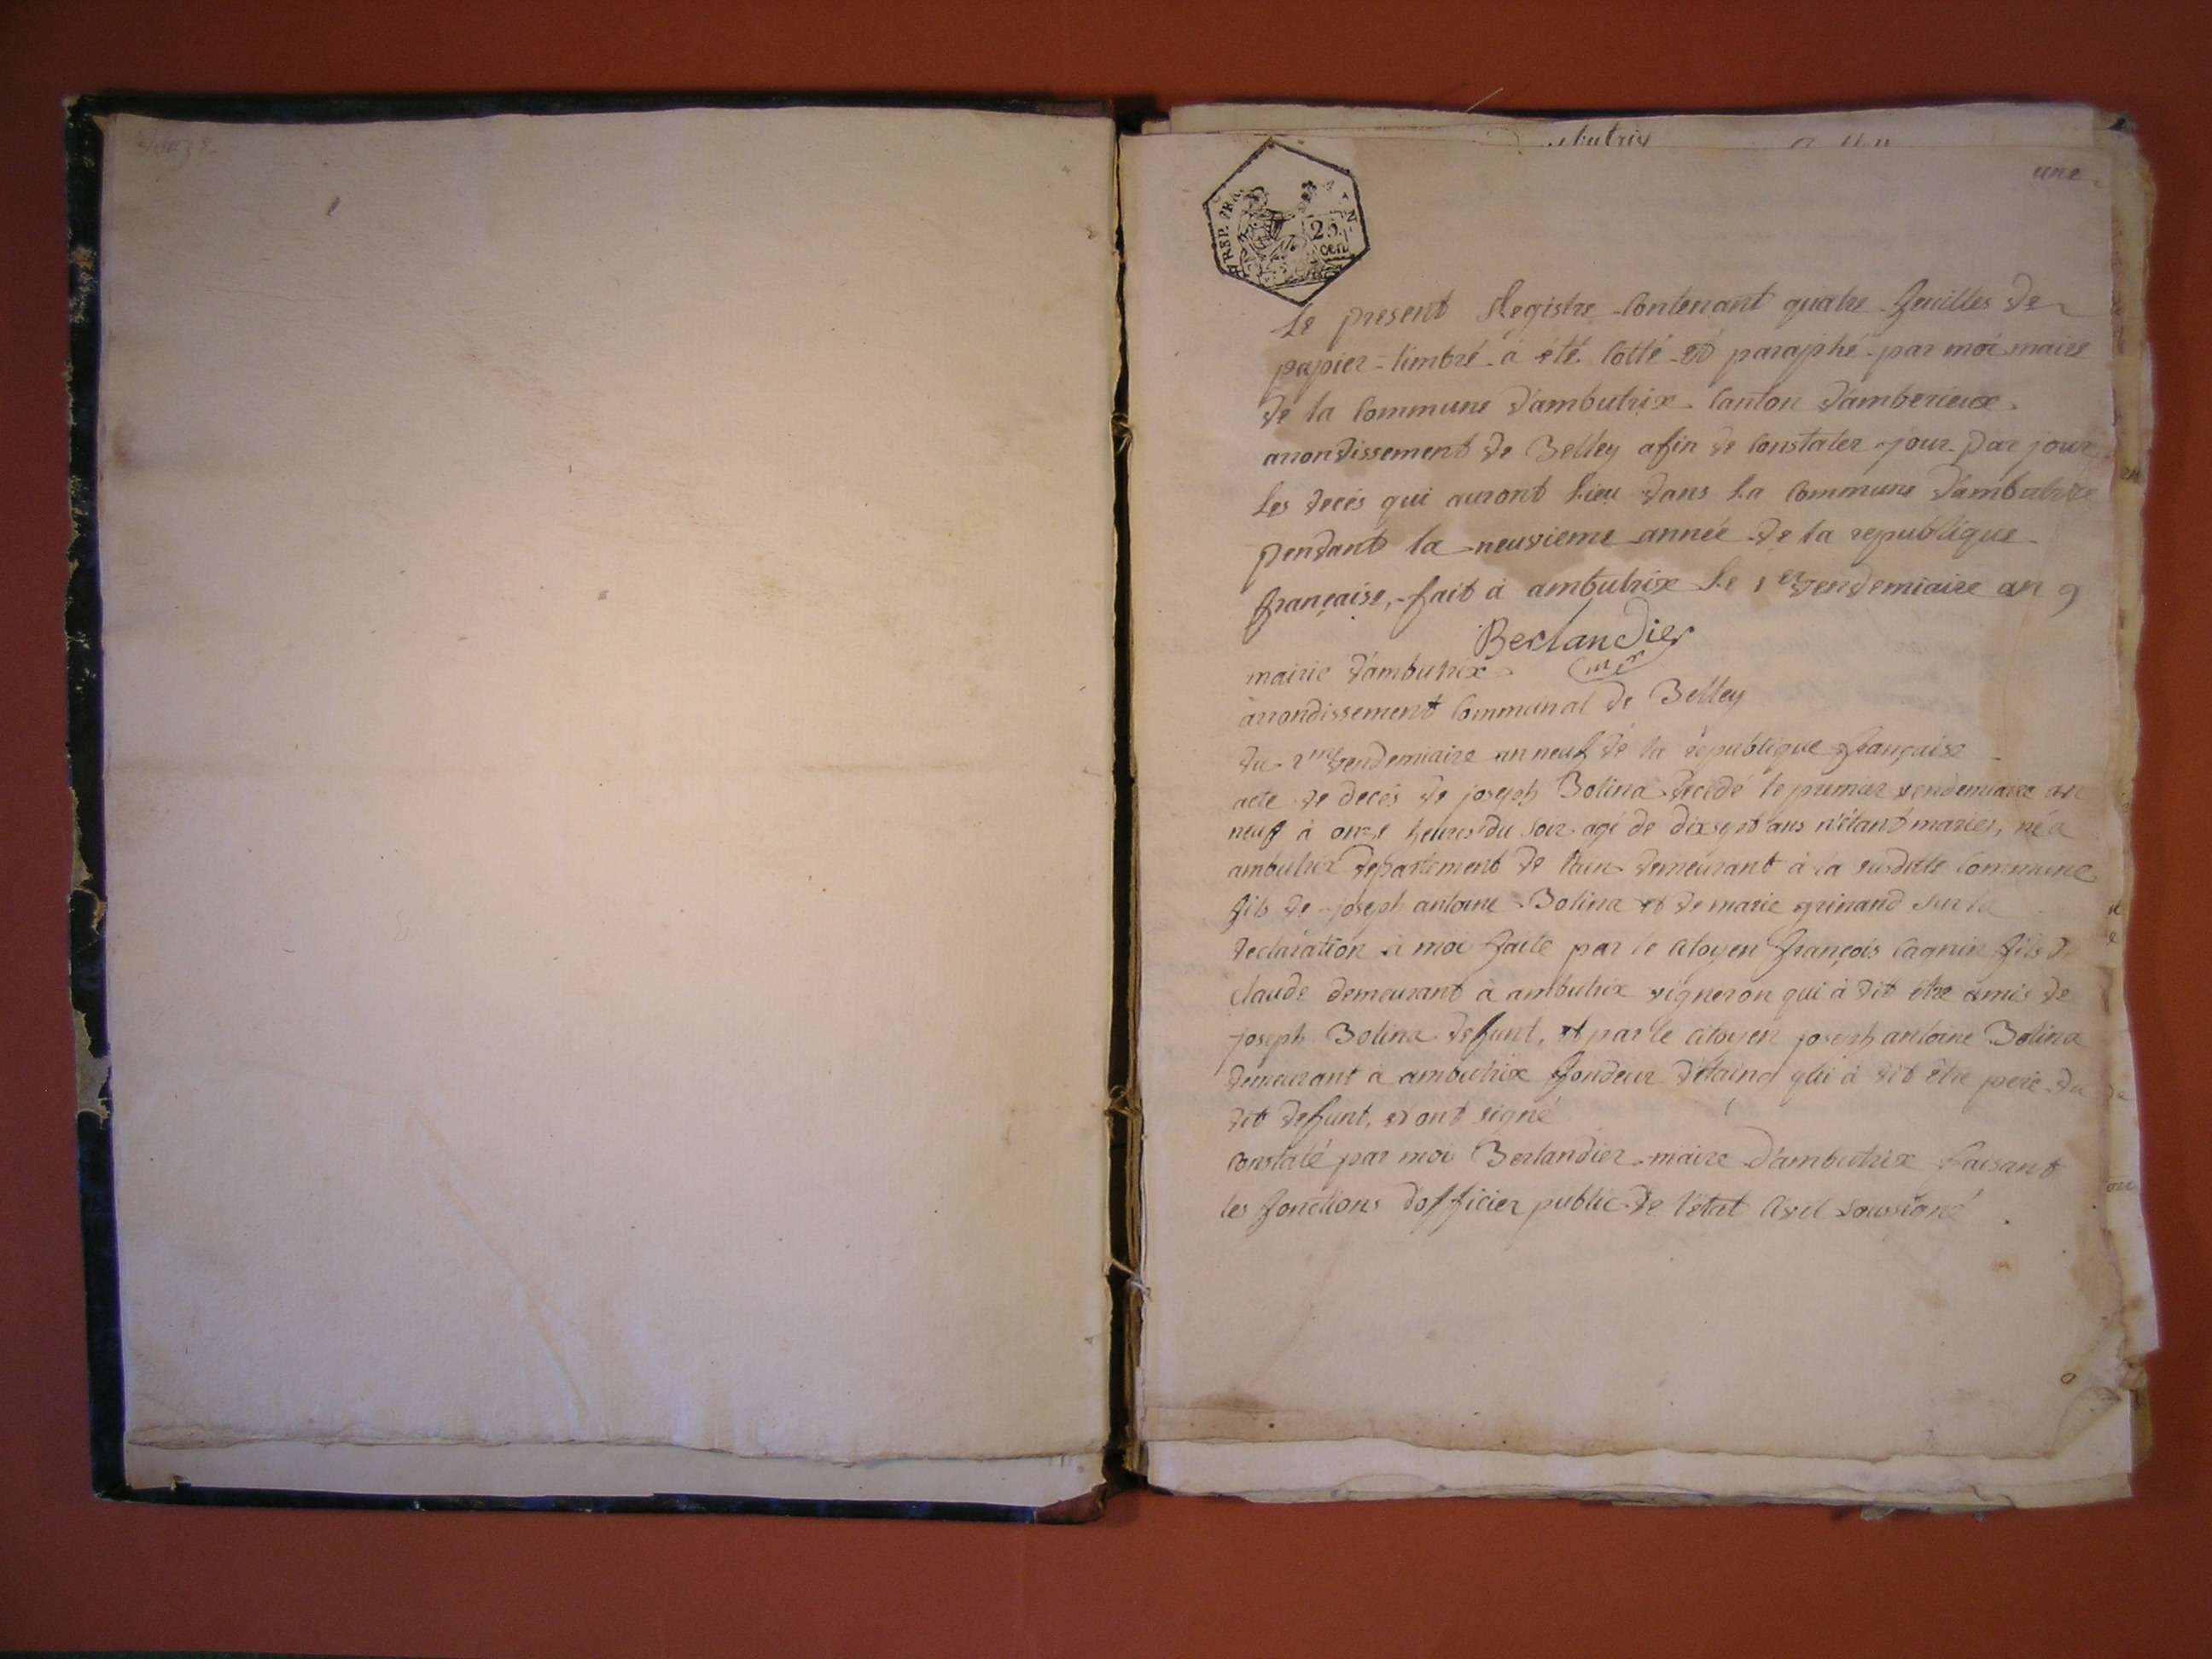 une
REP. FRA
25
cen
Le present Registre contenant quatre feuilles de
papier timbré à été cotté et paraphé par moi maire
de la commune d'ambutrix canton d'amberieux
arrondissement de Belley afin de constater jour par jour
les decés qui auront lieu dans la commune d'ambutrix
pendant la neuvieme année de la republique
française, fait à ambutrix le 1er vendemiaire an 9
Berlandier
mairie d'ambutrix
arrondissement communal de Belley
du 2me vendemiaire an neuf de la république française
acte de decés de joseph Bolina decedé le premier vendemiaire an
neuf à onze heures du soir agé de dixsept ans n'étant marier, né a
ambutrix departement de l'ain demeurant à la susditte commune
fils de joseph antoine Bolina et de marie grinand sur la
declaration à moi faite par le citoyen françois cagnin fils de
claude demeurant à ambutrix vigneron qui à dit être amis de
joseph Bolina defunt, et par le citoyen joseph antoine Bolina
demeurant à ambutrix fondeur d'étaing qui à dit être pere du
dit defunt, et ont signé
constaté par moi Berlandier maire d'ambutrix faisant
les fonctions d'officier public de l'état civil soussigné